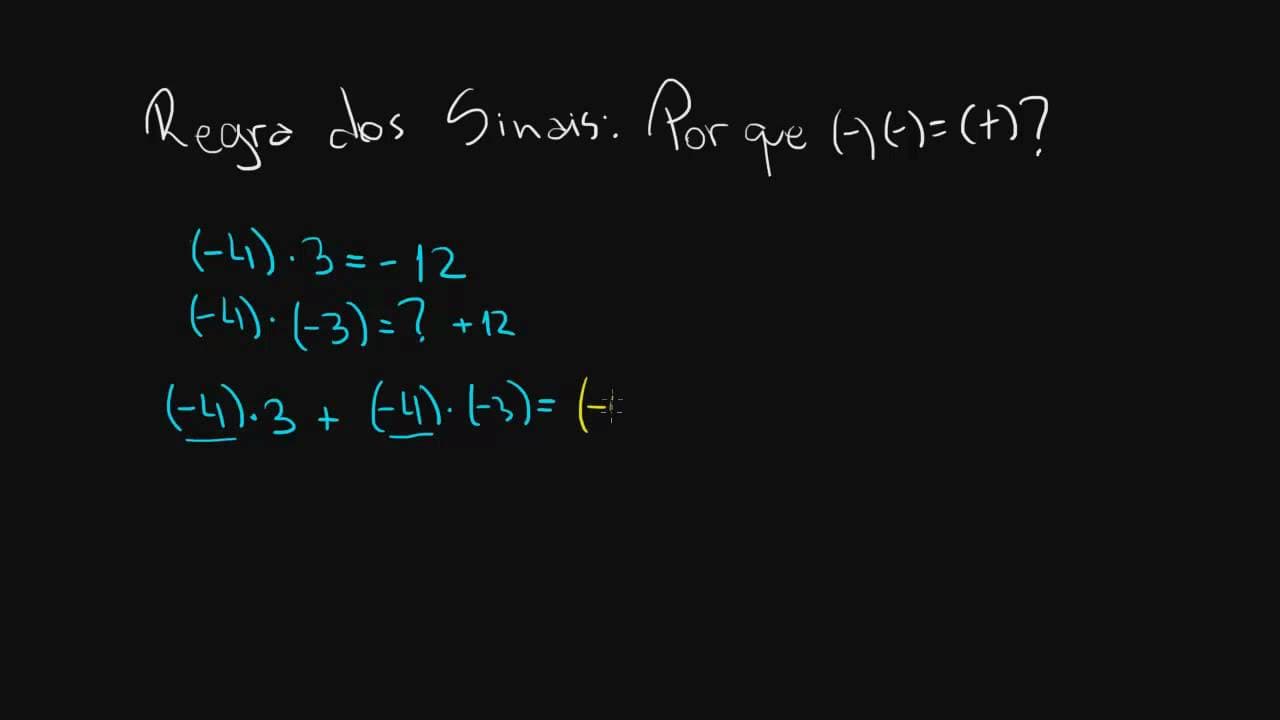 Regra dos Sinais: Por que (-)(-)=(+)?
(-4)·3=-12
(-4)·(-3)=? +12
(-4)·3 + (-4)·(-3)= (-